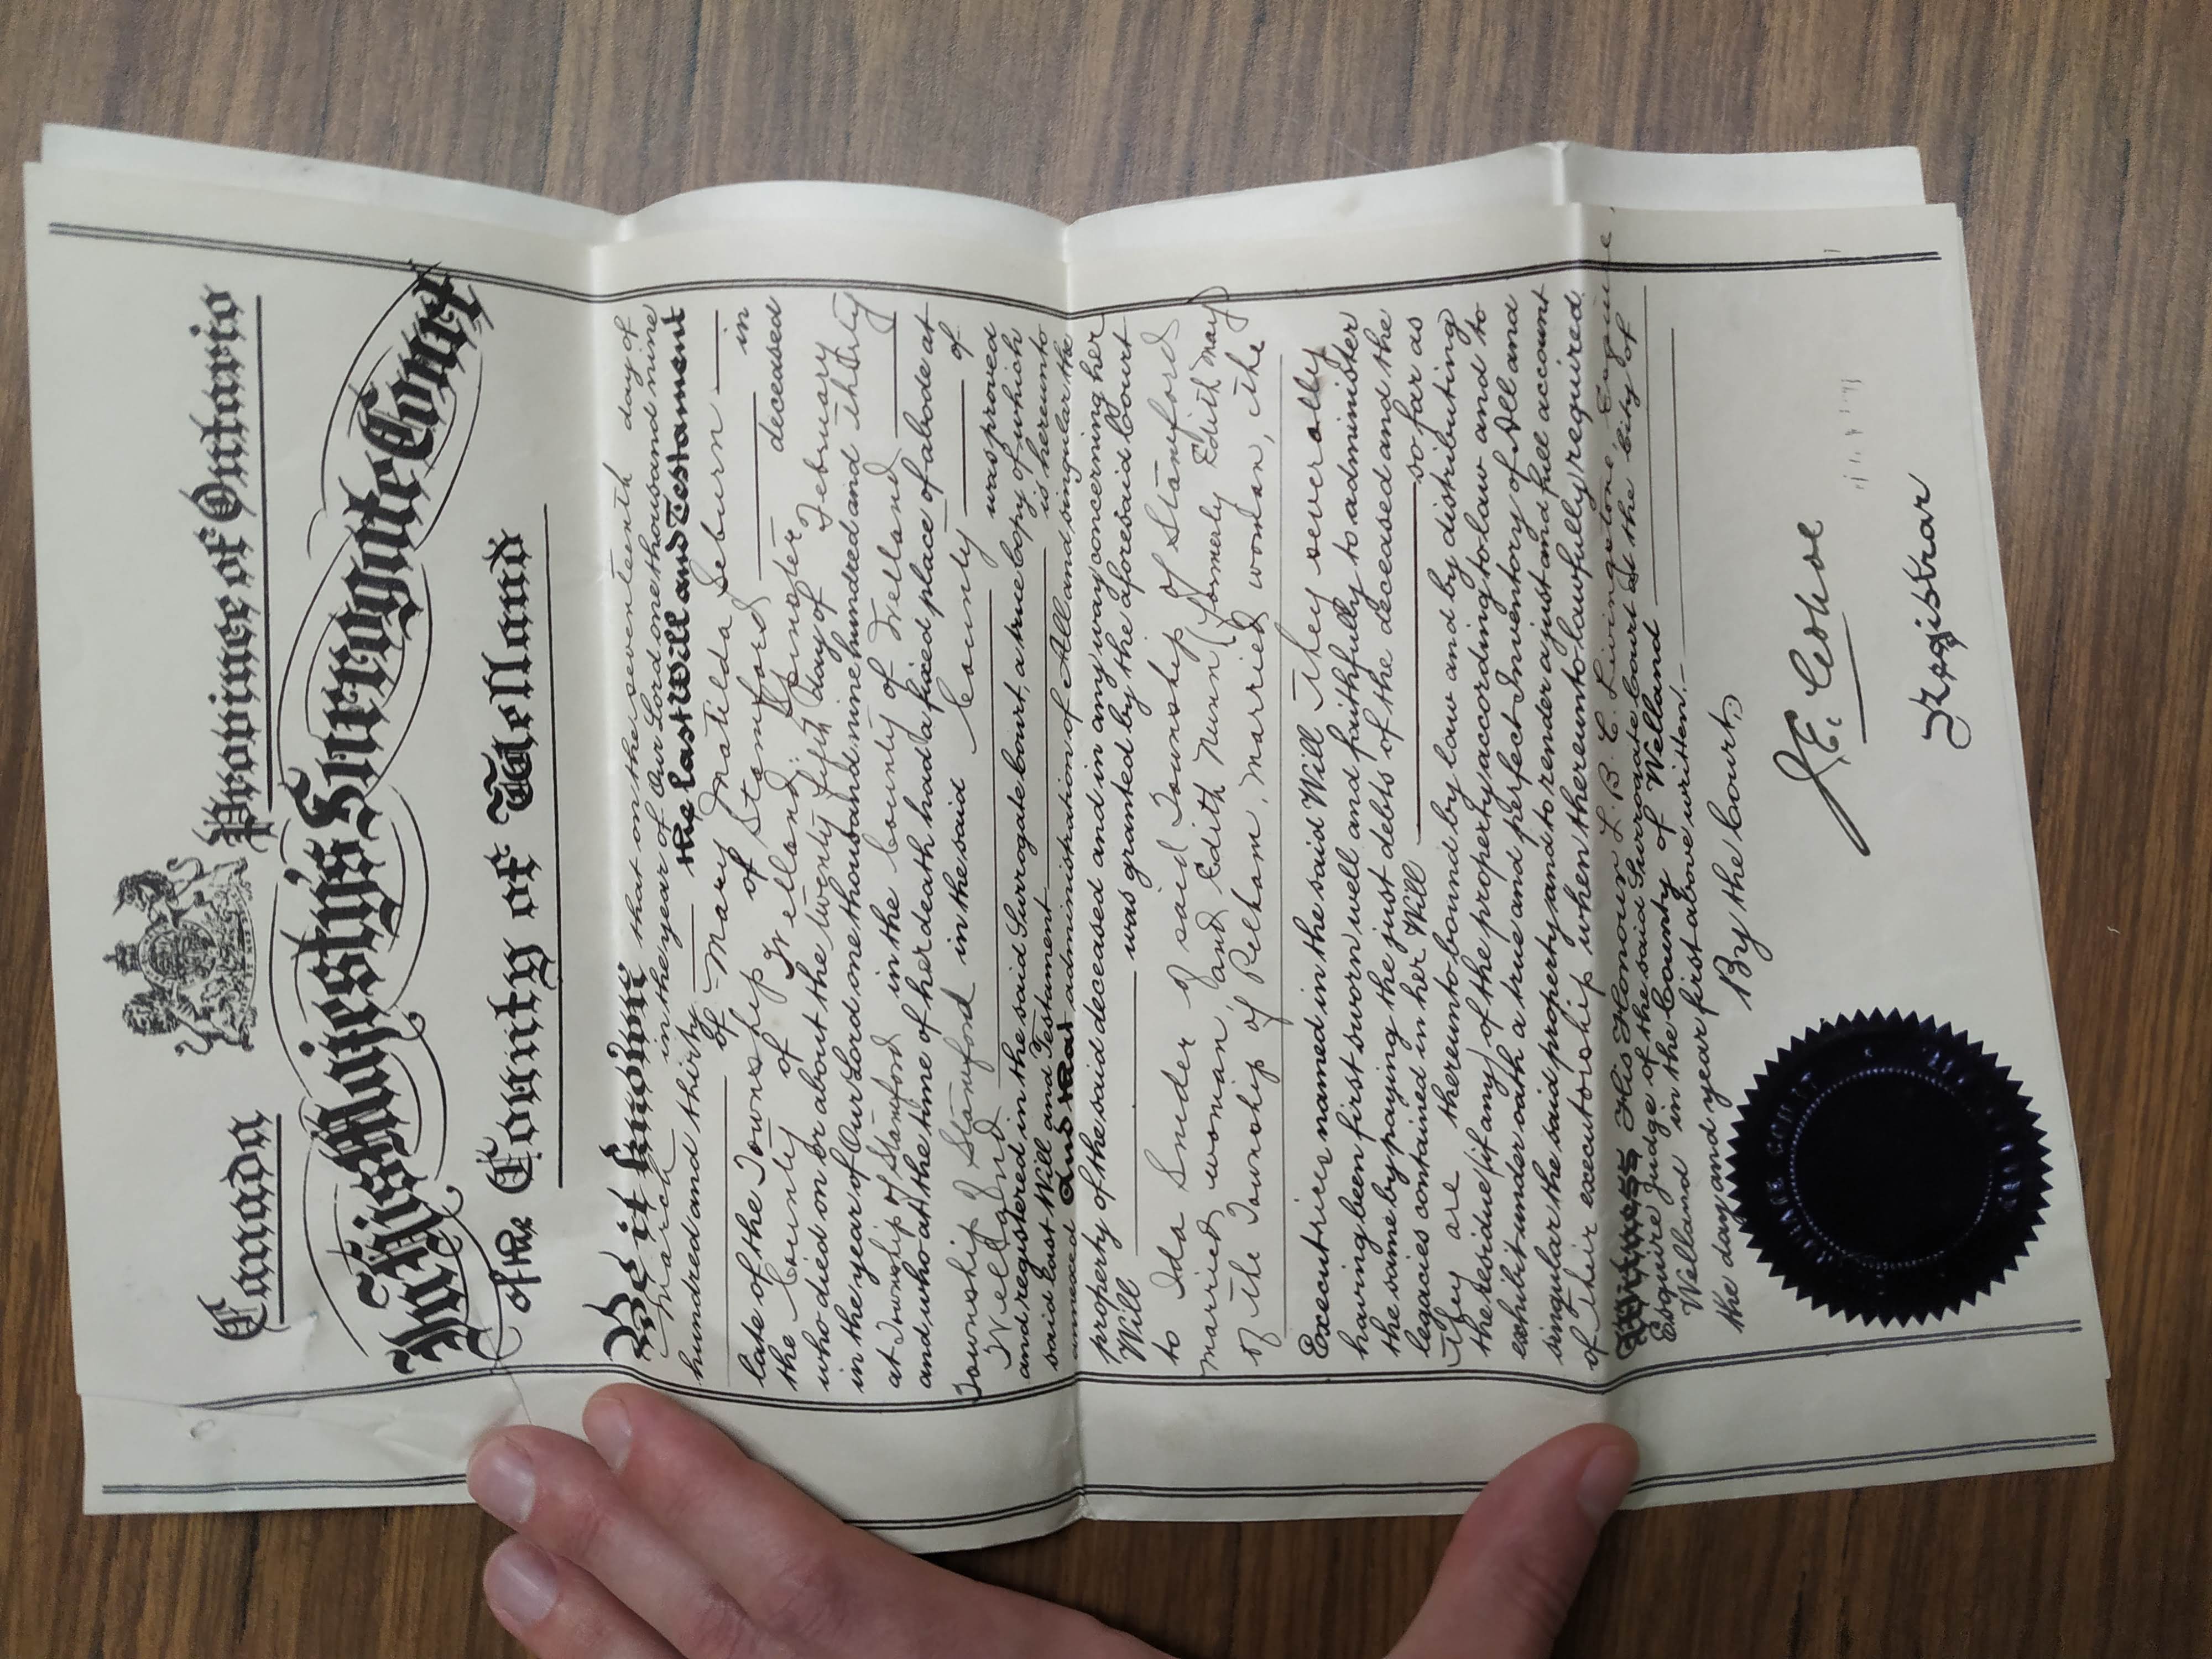 Canada
Province of Ontario
In His Majesty's Surrogate Court
of the County of Welland
Be it known that on the seventeenth day of
March in the year of Our Lord one thousand nine
hundred and thirty the last Will and Testament
of Mary Matilda Seburn
late of the Township of Stamford in
the County of Welland. Spinster deceased
who died on or about the twenty fifth day of February
in the year of Our Lord one thousand nine hundred and thirty
at Township of Stamford in the County of Welland
and who at the time of her death had a fixed place of abode at
Township of Stamford in the said County of
Welland was proved
and registered in the said Surrogate Court, a true Copy of which
said last Will and Testament is hereunto
annexed And that administration of All and singular the
property of the said deceased and in any way concerning her
Will was granted by the aforesaid Court
to Ida Snider of said Township of Stamford
married woman, and Edith Nunn (formerly Edith May)
of the Township of Pelham, married woman, the
Executrices named in the said Will they severally
having been first sworn well and faithfully to administer
the same by paying the just debts of the deceased and the
legacies contained in her Will so far as
they are thereunto bound by law and by distributing
the residue (if any) of the property according to law and to
exhibit under oath a true and perfect Inventory of All and
singular the said property and to render a just and full account
of their executorship when thereunto lawfully required.
Witness His Honour L. B. C. Livingstone, Esquire,
Esquire Judge of the said Surrogate Court at the City of
Welland in the County of Welland
the day and year first above written.
By the Court,
J. E. Cohoe
Registrar